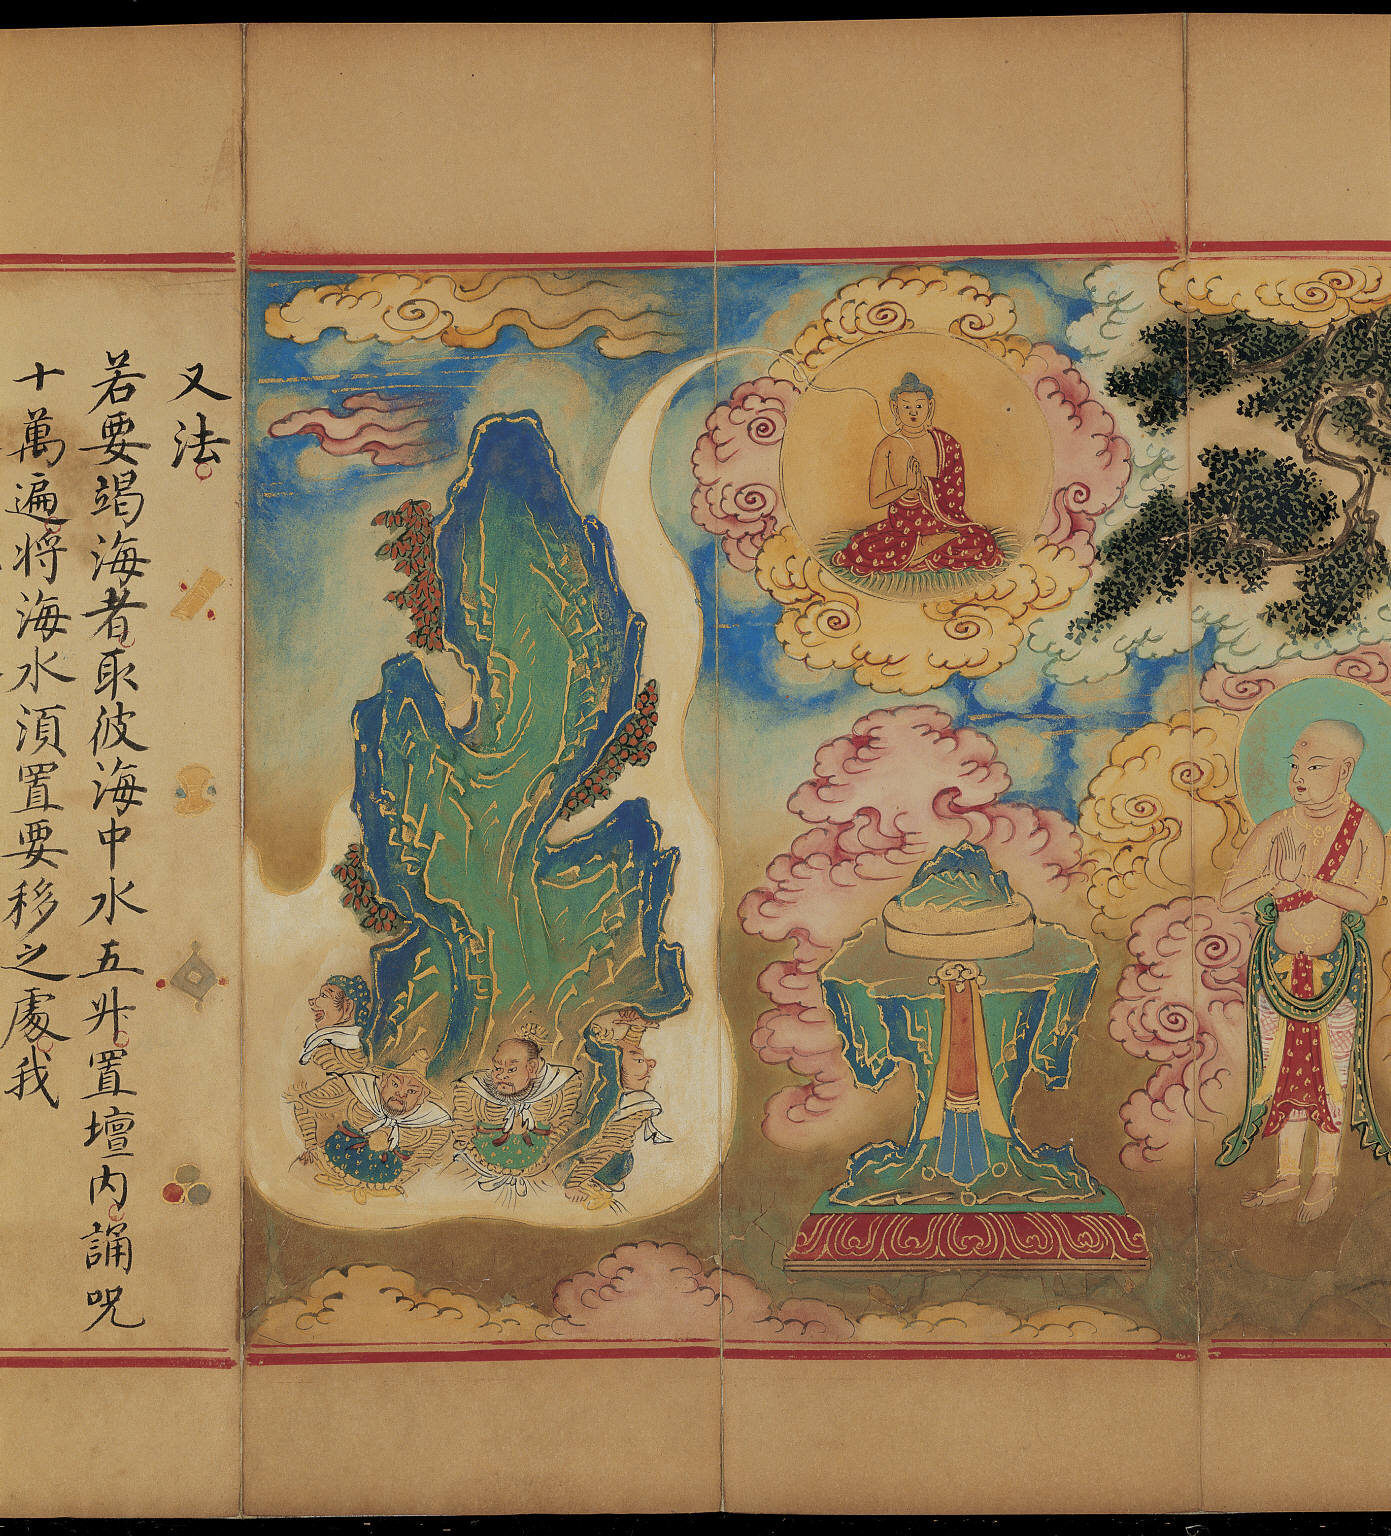 又法
若要竭海者取彼海中水五升置壇内誦呪
十萬遍将海水須置要移之處我